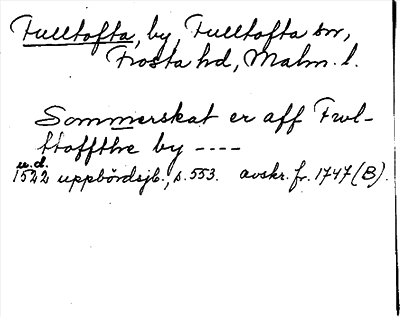 Fulltofta, by, Fulltofta sn,
Frosta hd, Malm. l.
Sommerskat er aff Fwl-
ttoffthe by ----
u.d.
1522 uppbördsjb., s. 553. avskr. fr. 1747 (B).